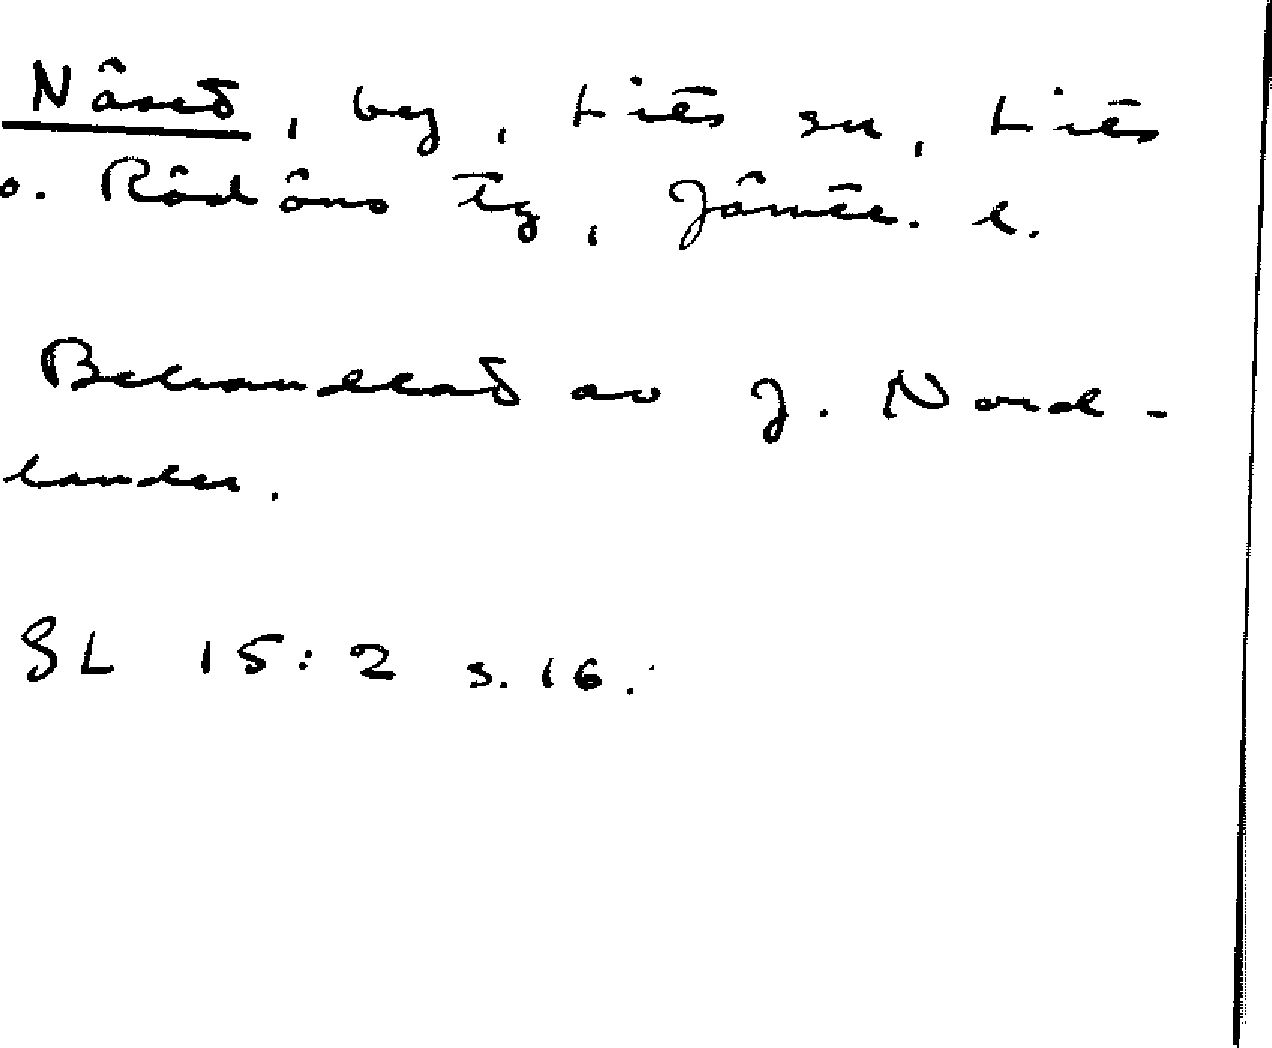 Näset, by, Lits sn, Lits
o. Rödöns tg, Jämtl. l.
Behandlat av J. Nord-
lander.
SL 15:2 s. 16.